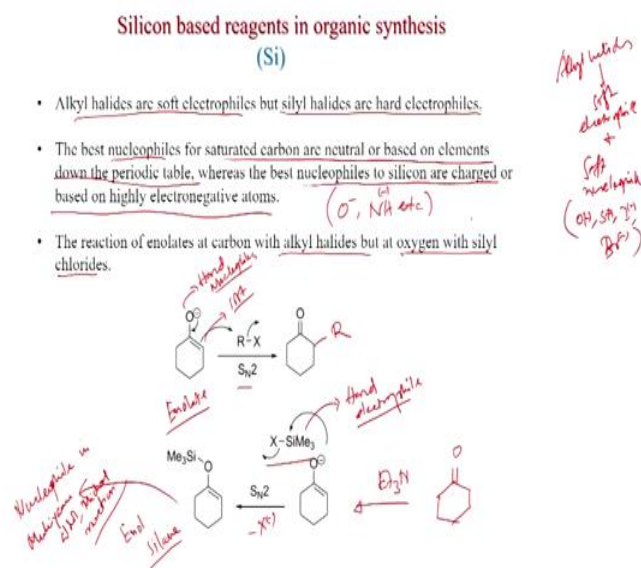 Silicon based reagents in organic synthesis
(Si)
• Alkyl halides are soft electrophiles but silyl halides are hard electrophiles.
• The best nucleophiles for saturated carbon are neutral or based on elements
down the periodic table, whereas the best nucleophiles to silicon are charged or
based on highly electronegative atoms.
(O⁻, NH⁽⁻⁾ etc)
• The reaction of enolates at carbon with alkyl halides but at oxygen with silyl
chlorides.
Alkyl halides
Soft
electrophile
+
Soft
nucleophile
Hard
Nucleophile
soft
O⊖
R-X
SN2
O
R
Enolate
Hard
electrophile
X-SiMe3
Me3Si
O
SN2
-X(-)
O⊖
Et3N
O
Nucleophile in
reaction
Enol
Silane